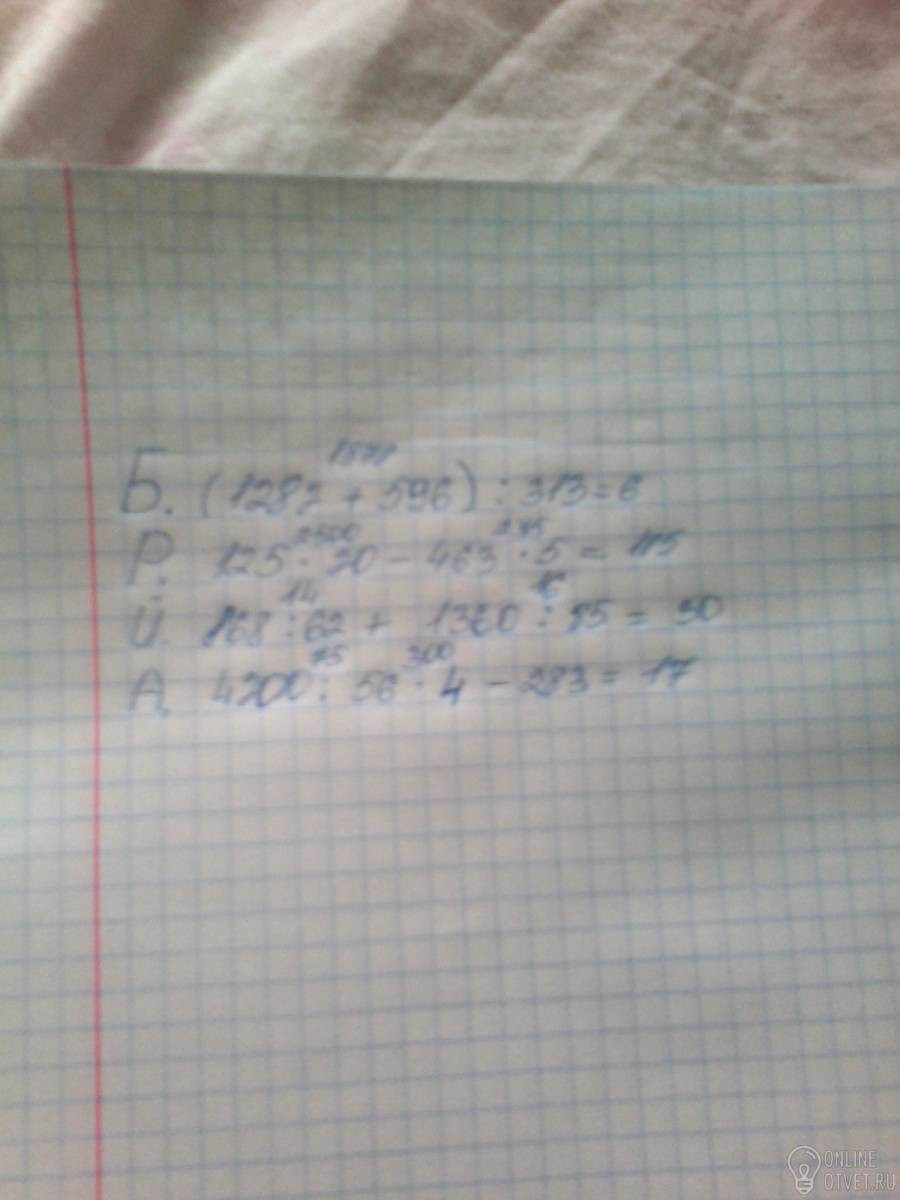 1878
Б. (1282 + 596) : 313 = 6
2500
Р. 125 · 20 - 463 · 5 = 185
14 16
Й. 868 : 62 + 1360 : 85 = 30
75 300
А. 4200 : 56 · 4 - 283 = 17
ONLINE
OTVET.RU